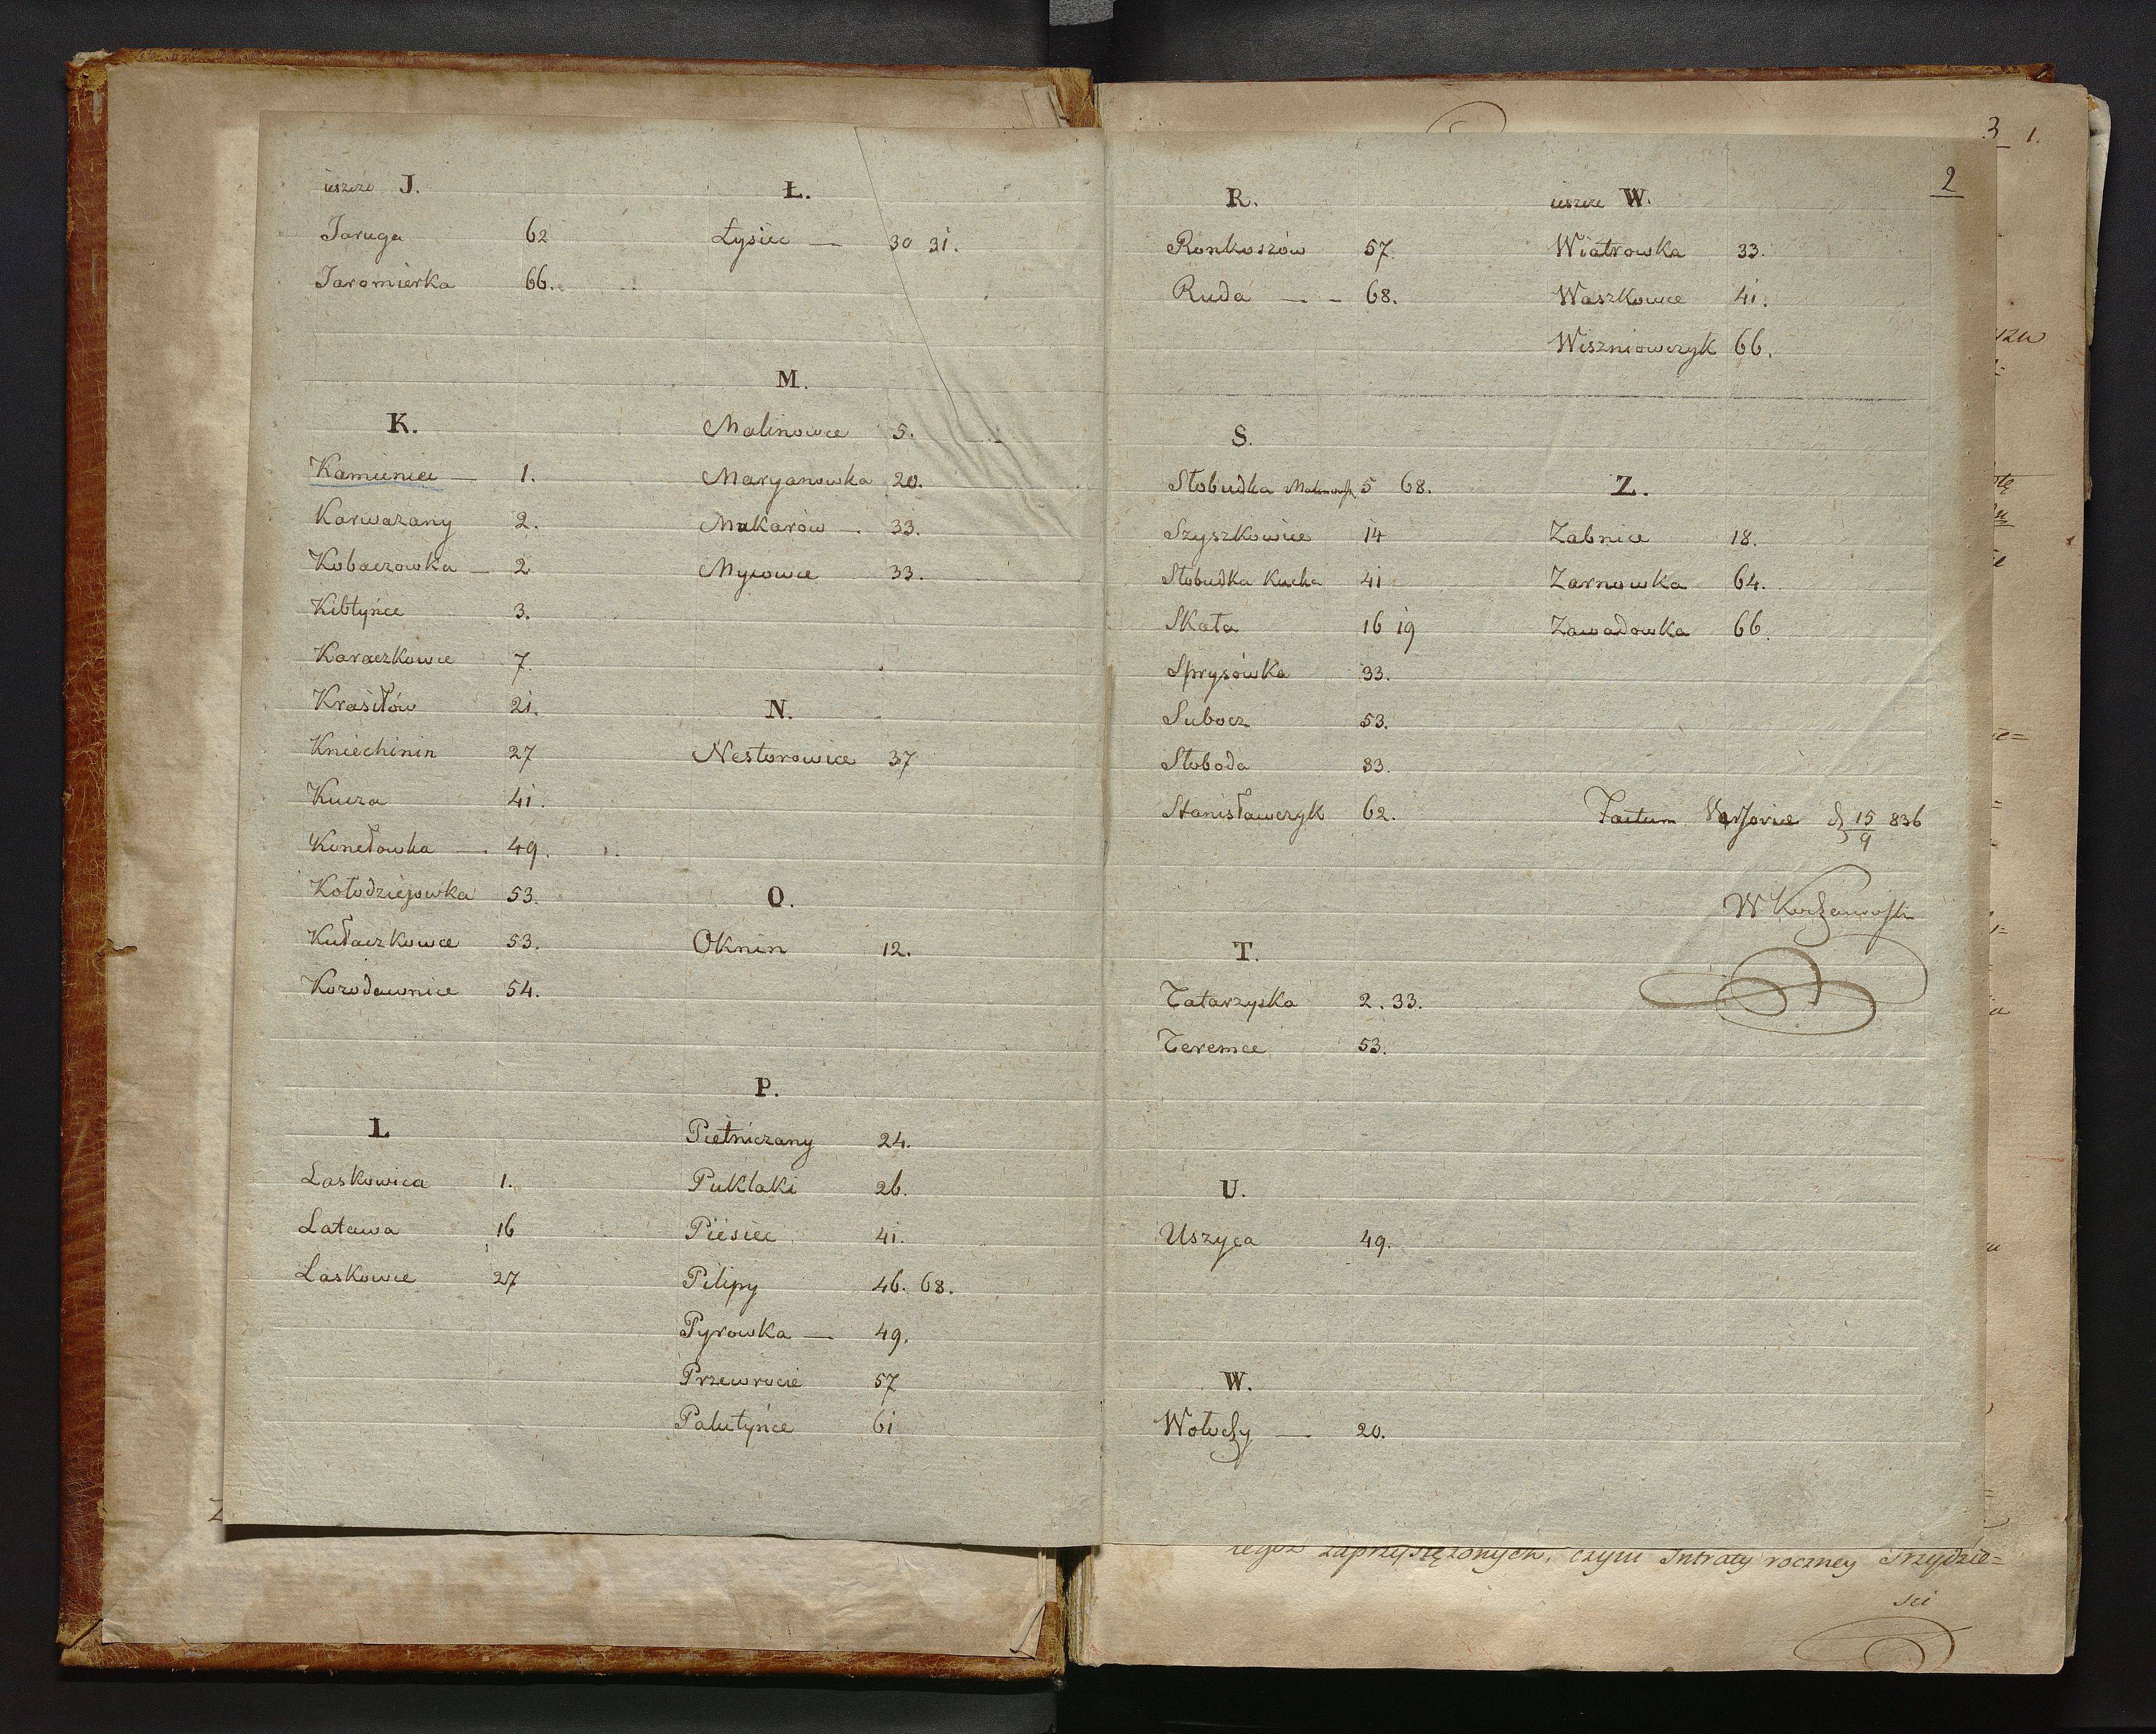 ieszcze J.
Jaruga 62
Jaromierka 66.
K.
Kamieniec — 1.
Karwazany 2.
Kobaczowka — 2
Kibłyńce 3.
Karaczkowce 7.
Krasiłów 21.
Kniechinin 27
Kucza 41.
Kunełowka — 49.
Kołodziejowka 53.
Kułaczkowce 53.
Korodawnice 54.
L
Laskowica 1.
Latawa 16
Laskowce 27
Ł.
Łysiec — 30 31.
M.
Malinowce 5.
Maryanowka 20.
Makarów — 33.
Mycowce 33.
N.
Nestorowice 37
O.
Oknin 12.
P.
Pietniczany 24.
Puklaki 26.
Piésiec 41.
Pilipy 46. 68.
Pyrowka — 49.
Przewrocie 57
Palutyńce 61
2
R.
Ronkoszów 57.
Ruda — - 68.
S.
Słobudka Malinowsk. 5 68.
Szyszkowce 14
Słobudka Kucha 41
Skała 16 19
Sprysówka 33.
Subocz 53.
Słoboda 33.
Stanisławczyk 62.
T.
Tatarzyska 2. 33.
Teremce 53.
U.
Uszyca 49.
W.
Wołochy — 20.
ieszcze W.
Wiatrowka 33.
Waszkowce 41.
Wiszniowczyk 66.
Z.
Zabnice 18.
Zarnowka 64.
Zawadowka 66.
Factum d 15/9 836
3 1.
tegoż zaprzysiężonych, czyni Intraty roczney Trzydzie=
sci